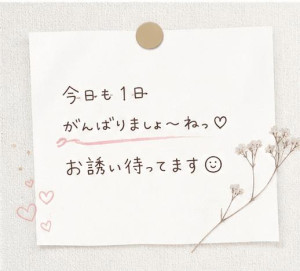 今日も1日
がんばりましょ〜ねっ♡
お誘い待ってます☺